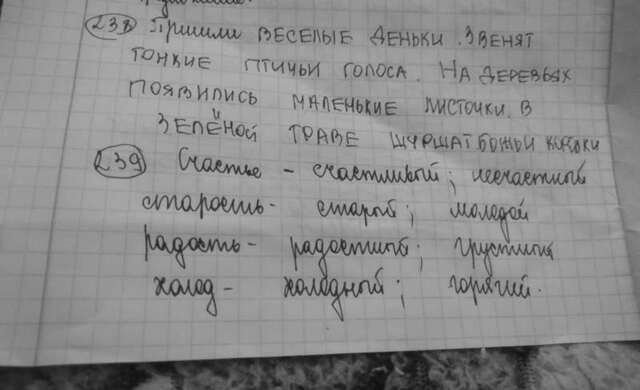 238 Пришли ВЕСЕЛЫЕ ДЕНЬКИ. ЗВЕНЯТ
ТОНКИЕ ПТИЧЬИ ГОЛОСА. НА ДЕРЕВЬЯХ
ПОЯВИЛИСЬ МАЛЕНЬКИЕ ЛИСТОЧКИ. В
ЗЕЛЁНОЙ ТРАВЕ ШУРШАТ БОЖЬИ
239 Счастье - счастливый; несчастный
старость - старый; молодой
радость - радостный; грустный
холод - холодный; горячий.